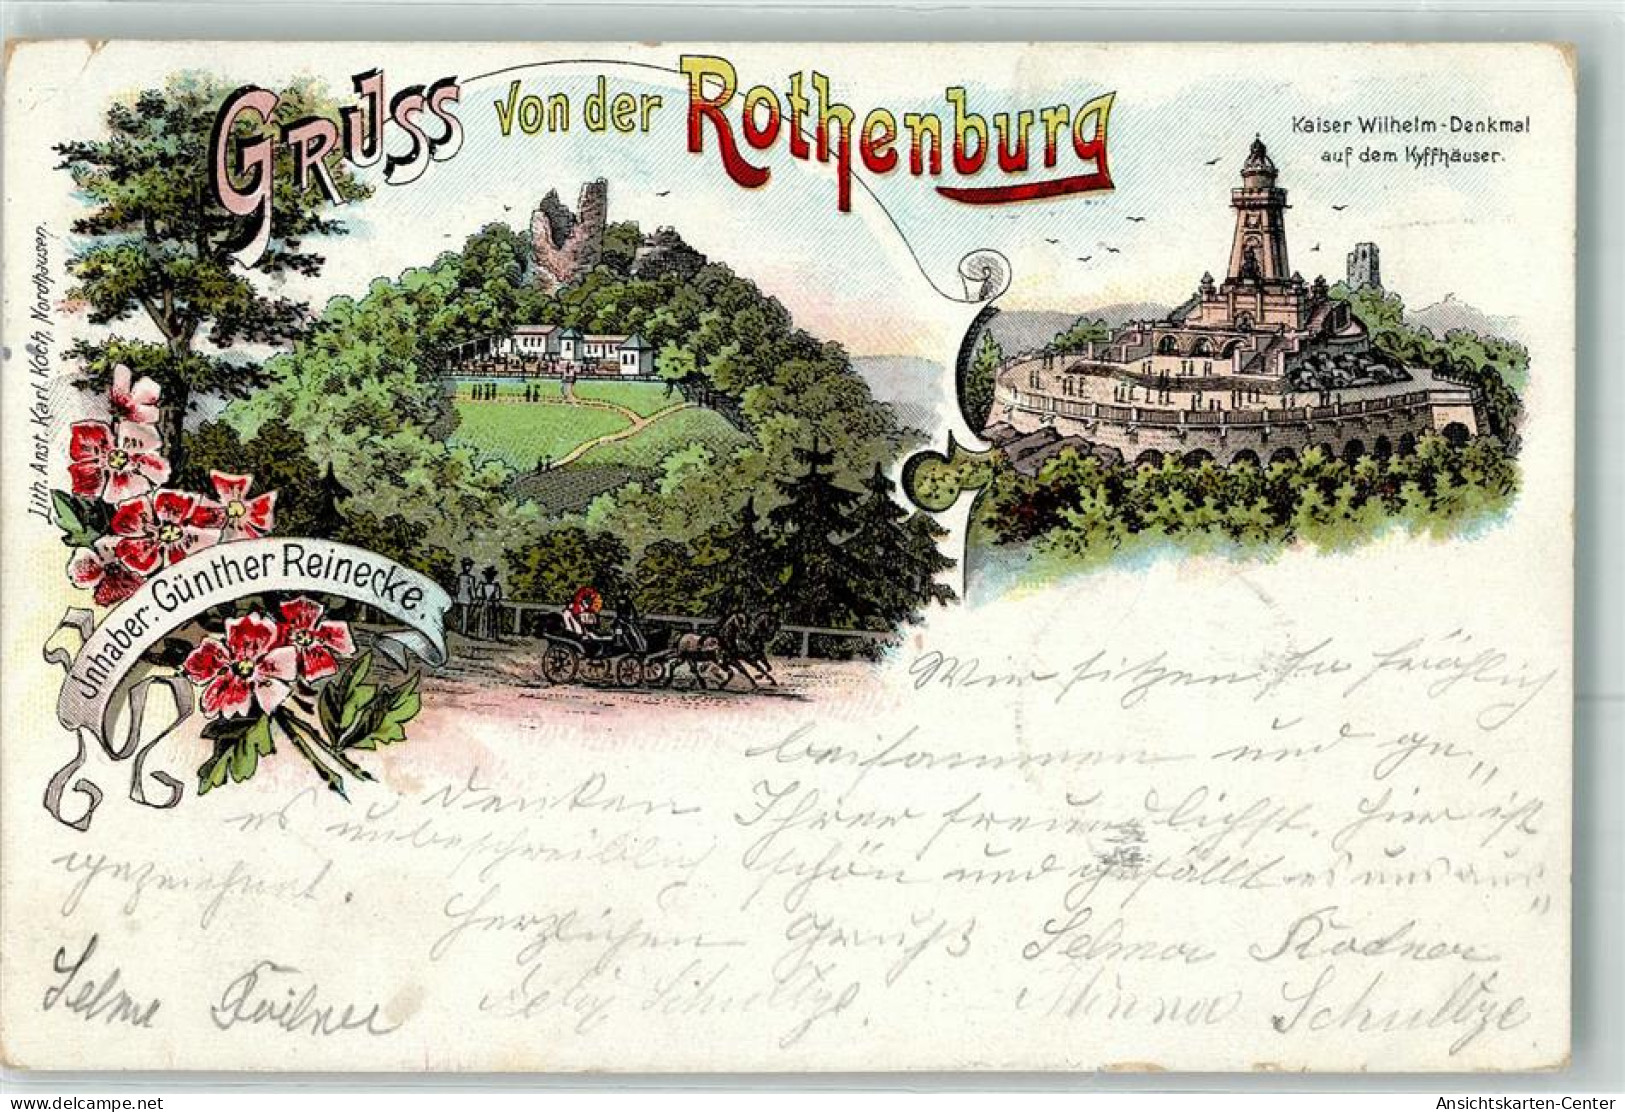 Gruss von der Rothenburg
Kaiser Wilhelm-Denkmal
auf dem Kyffhäuser.
Lith. Anst. Karl Koch, Nordhausen.
Inhaber: Günther Reinecke.
Wir sitzen so fröhlich
beisammen und ge"
denken Ihrer freundlichst. Hier ist
es unbeschreiblich schön und gefällt es uns aus"
gezeichnet.
Herzlichen Gruß Selma
Selma
Felix Schultze. Minna Schultze
delcampe.net
Ansichtskarten-Center